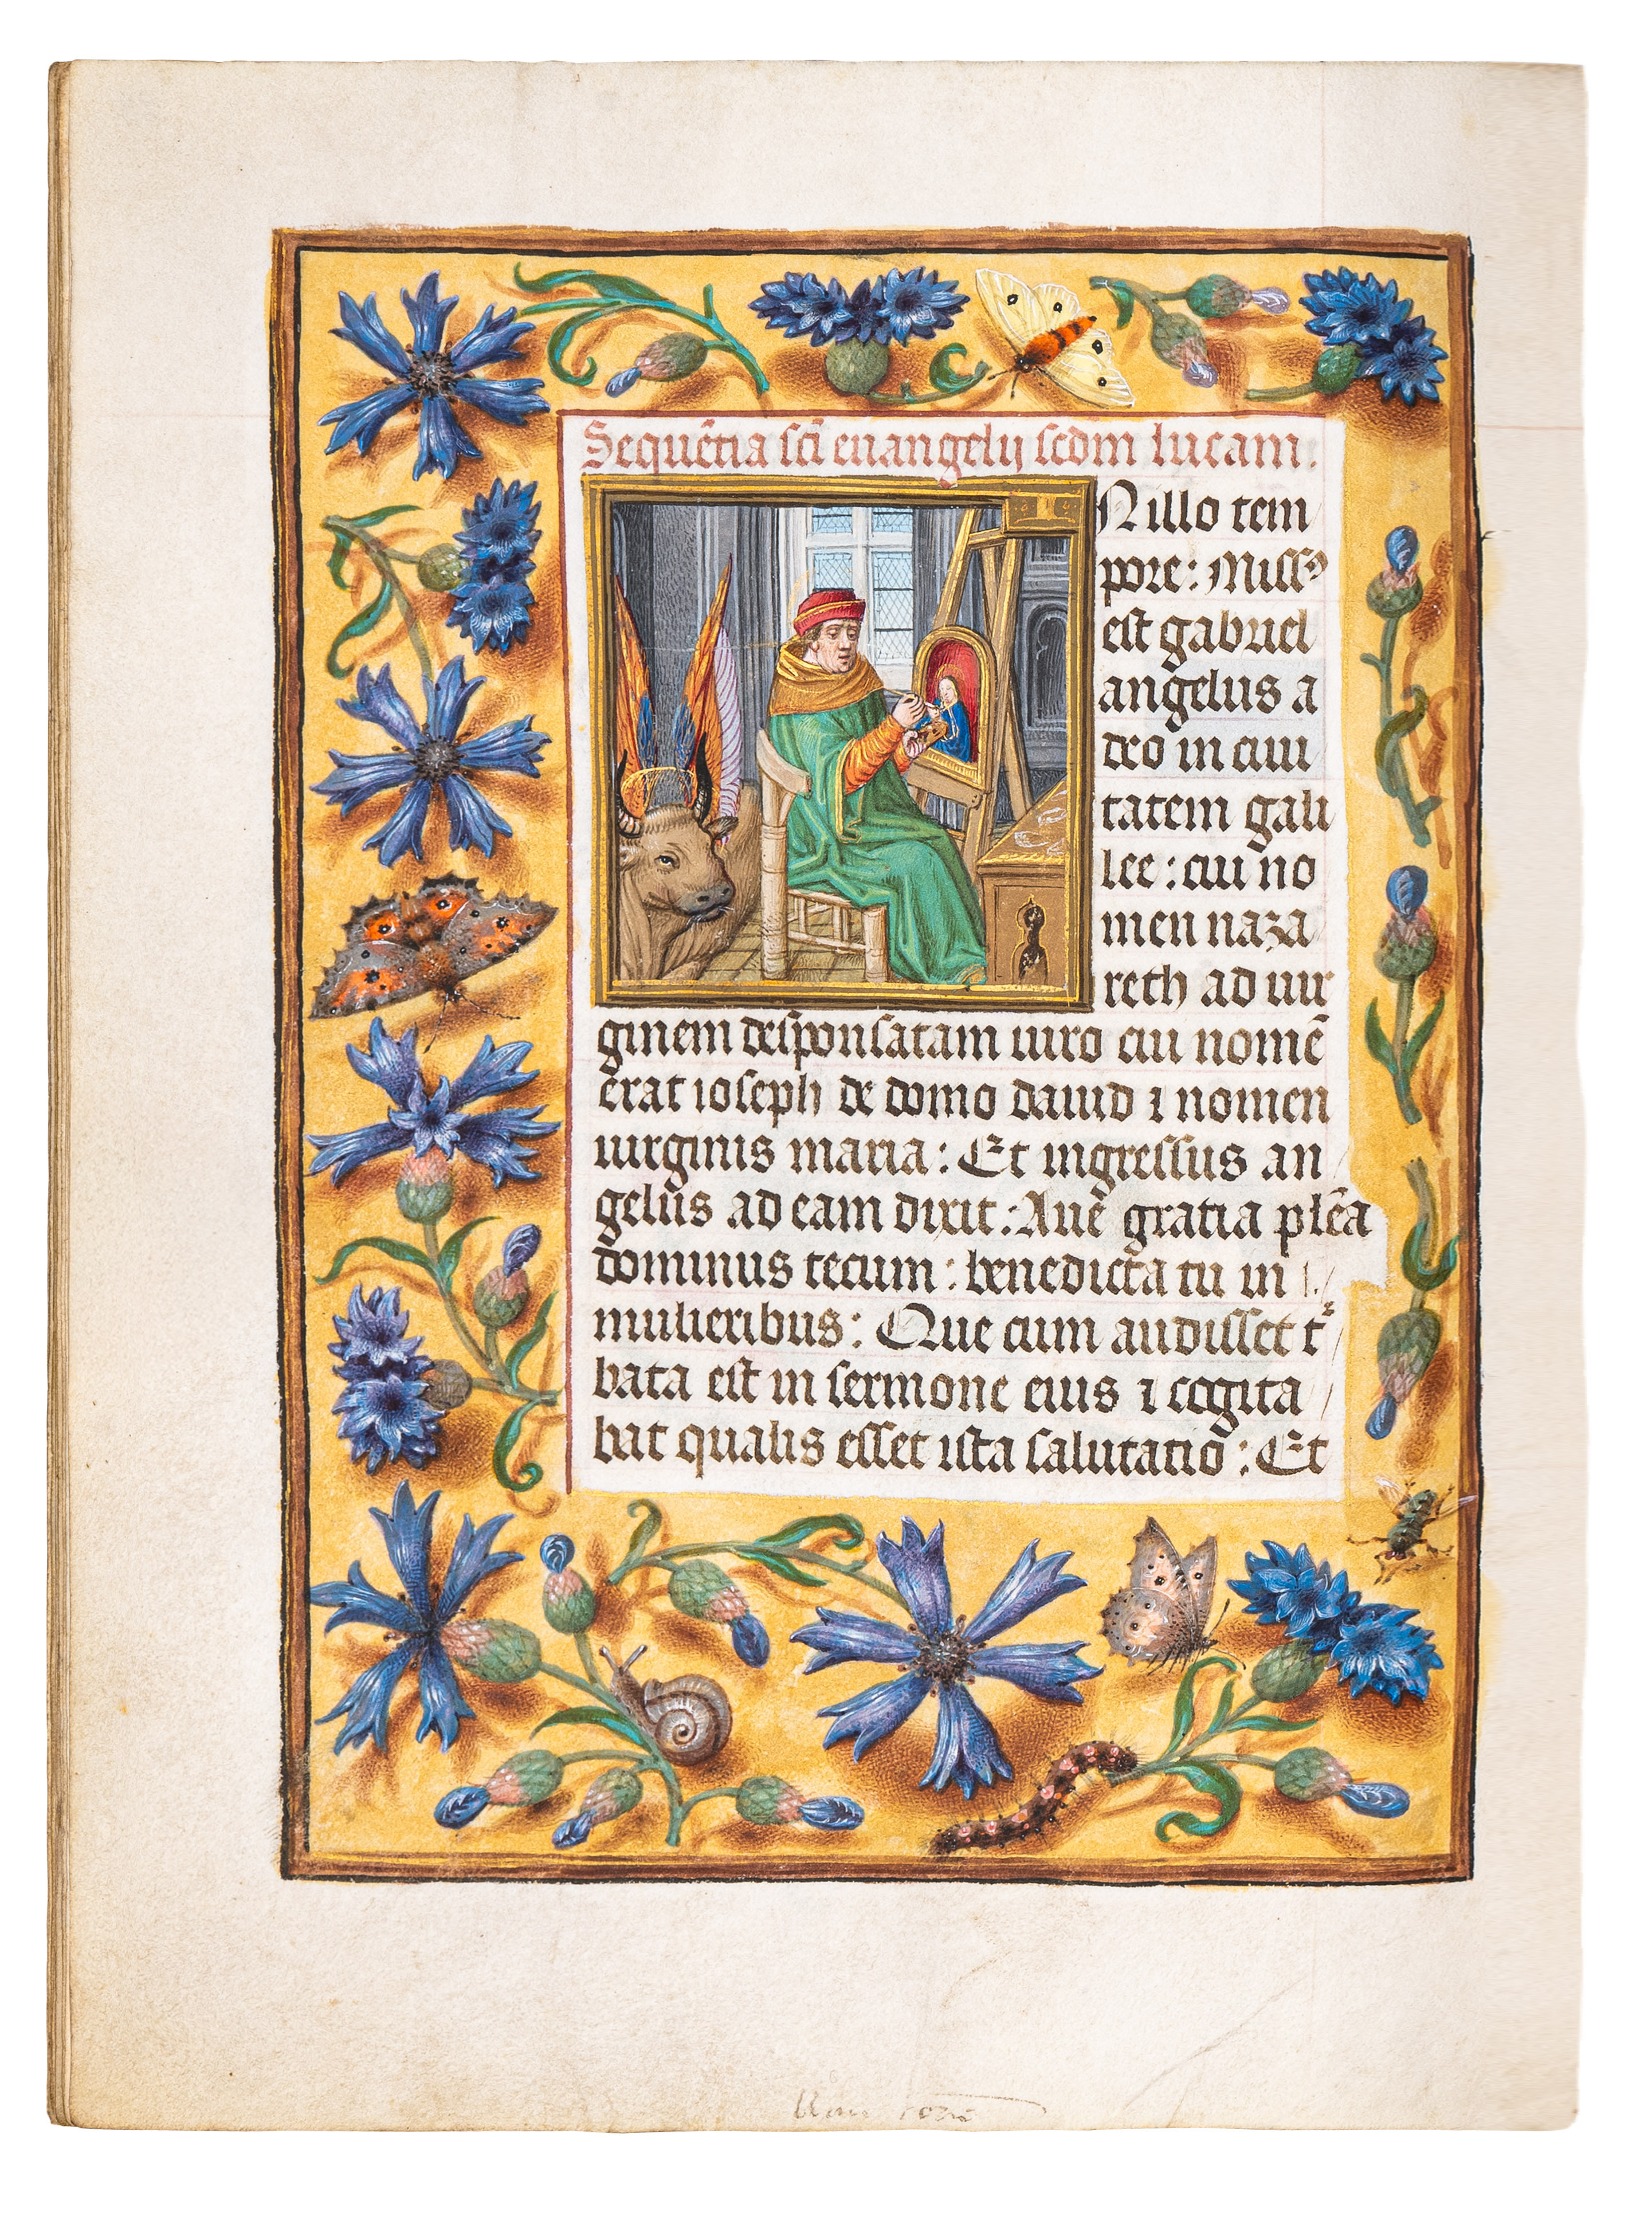 Sequẽtia sci̅ euangelij scdm lucam.
N illo tem
pore: Missꝰ
est gabriel
angelus a
deo in ciui
tatem gali
lee: cui no
men naza
reth ad uir
ginem desponsatam uiro cui nomẽ
erat ioseph de domo dauid ⁊ nomen
uirginis maria: Et ingressus an
gelus ad eam dixit: Aue gratia plẽa
dominus tecum: benedicta tu in
mulieribus: Que cum audisset t
bata est in sermone eius ⁊ cogita
bat qualis esset ista salutatio: Et